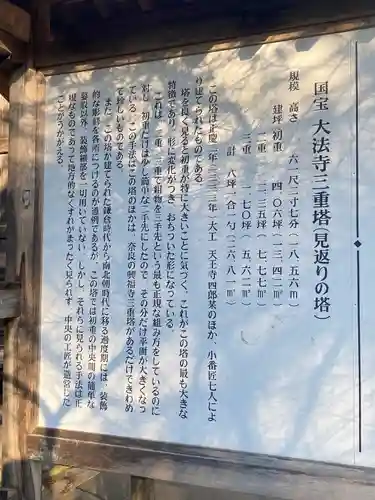 国宝 大法寺三重塔(見返りの塔)
規模 高さ 六一尺二寸七分(一八.五六m)
建坪 初重 四.〇六坪(一三.四二㎡)
二重 二.三五坪( 七.七七㎡)
三重 一.七〇坪( 五.六二㎡)
計 八坪一合一勺(二六.八一㎡)
この塔は正慶二年(一三三三年)大工 天王寺四郎某のほか、小番匠七人によ
り建てられたものである。
塔を良く見ると初重が特に大きいことに気づく、これがこの塔の最も大きな
特徴であり、形に変化がつき、おちついた形になっている。
これは、二重、三重の組物を三手先という最も正規な組み方をしているのに
対し、初重だけはやや簡単な二手先にしたので、その分だけ平面が大きくなっ
ている。この手法はこの塔のほかは、奈良の興福寺三重塔があるだけできわめ
て珍しいものである。
また、この塔が建てられた鎌倉時代から南北朝時代に移る過度期には、装飾
的な彫刻を各所につけるのが通例であるが、この塔では初重の中央間の簡単な
蟇股以外、装飾細部を一切用いていない。しかし、それらに見られる手法は正
規なものであって地方的なくずれがまったく見られず、中央の工匠が造営した
ことがうかがえる。